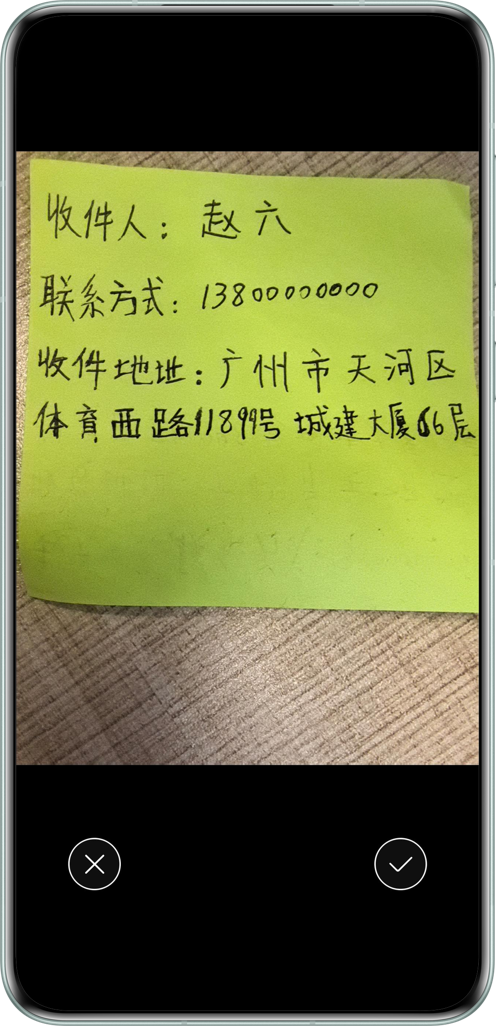 收件人：赵六
联系方式：13800000000
收件地址：广州市天河区
体育西路11899号 城建大厦66层